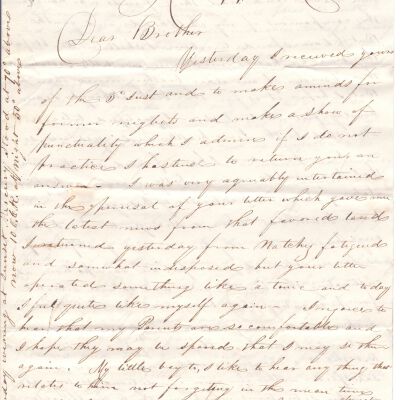 Dear Brother
Yesterday I received yours
of the 5th Inst and to make amends for
former neglects and make a show of
punctuality which I admire if I do not
practice I hasten to return you an
answer - I was very agreeably entertained
in the perusal of your letter which gave me
the latest news from that favored land
I returned yesterday from Natchez fatigued
and somewhat indisposed but your letter
operated something like a tonic and today
I feel quite like myself again - I rejoice to
hear that my Parents are so comfortable and
I hope they may be spared that I may see them
again. My little boy too, I like to hear any thing that
relates to him not forgetting in the mean time